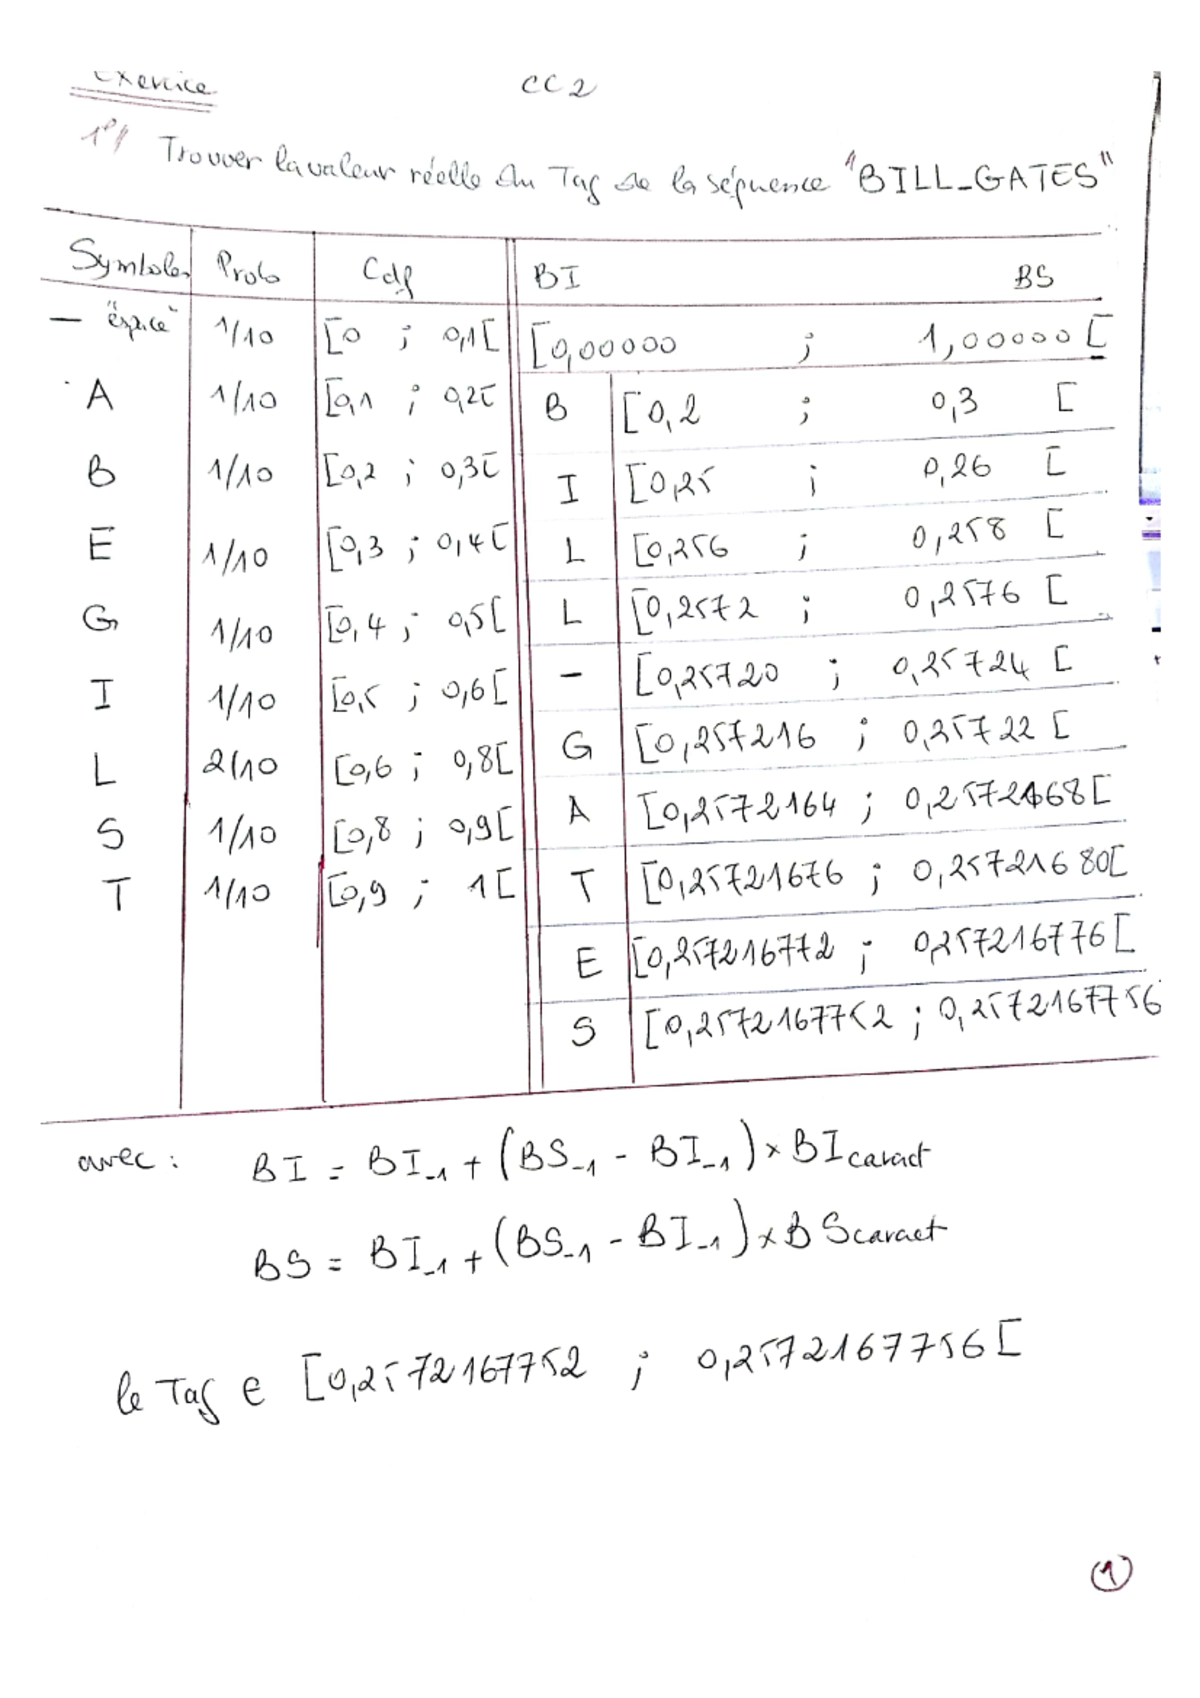 Exercice CC 2
1°/ Trouver la valeur réelle du Tag de la séquence "BILL_GATES"
Symboles Prob Cdf BI BS
— "espace" 1/10 [0 ; 0,1[ [0,00000 ; 1,00000[
A 1/10 [0,1 ; 0,2[ B [0,2 ; 0,3 [
B 1/10 [0,2 ; 0,3[ I [0,25 ; 0,26 [
E 1/10 [0,3 ; 0,4[ L [0,256 ; 0,258 [
G 1/10 [0,4 ; 0,5[ L [0,2572 ; 0,2576 [
I 1/10 [0,5 ; 0,6[ – [0,25720 ; 0,25724 [
L 2/10 [0,6 ; 0,8[ G [0,257216 ; 0,25722 [
S 1/10 [0,8 ; 0,9[ A [0,2572164 ; 0,2572168[
T 1/10 [0,9 ; 1[ T [0,25721676 ; 0,25721680[
E [0,257216772 ; 0,257216776[
S [0,2572167752 ; 0,2572167756
avec : BI = BI₋₁ + (BS₋₁ - BI₋₁) × BI caract
BS = BI₋₁ + (BS₋₁ - BI₋₁) × BS caract
le Tag ∈ [0,2572167752 ; 0,2572167756[
1